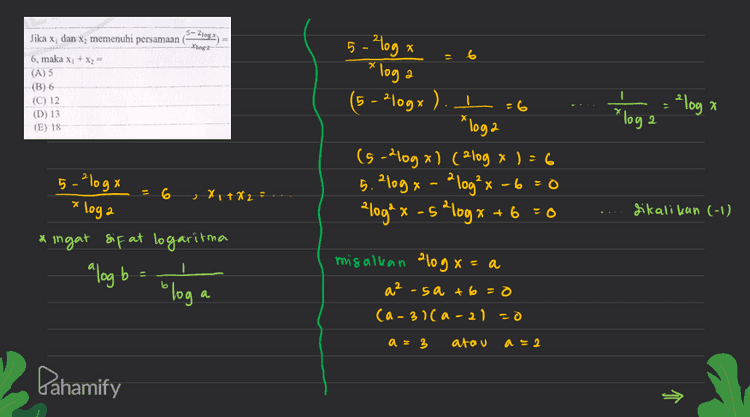 Jika x₁ dan x₂ memenuhi persamaan (5-²log x / ˣlog 2) =
6, maka x₁ + x₂ =
(A) 5
(B) 6
(C) 12
(D) 13
(E) 18
5 - ²log x / ˣlog 2 = 6 , x₁ + x₂ = ...
* ingat sifat logaritma
ᵃlog b = 1 / ᵇlog a
5 - ²log x / ˣlog 2 = 6
(5 - ²log x) . 1 / ˣlog 2 = 6 .... 1 / ˣlog 2 = ²log x
(5 - ²log x) (²log x) = 6
5. ²log x - ²log² x - 6 = 0
²log² x - 5 ²log x + 6 = 0 .... dikalikan (-1)
misalkan ²log x = a
a² - 5a + 6 = 0
(a - 3)(a - 2) = 0
a = 3 atau a = 2
Pahamify